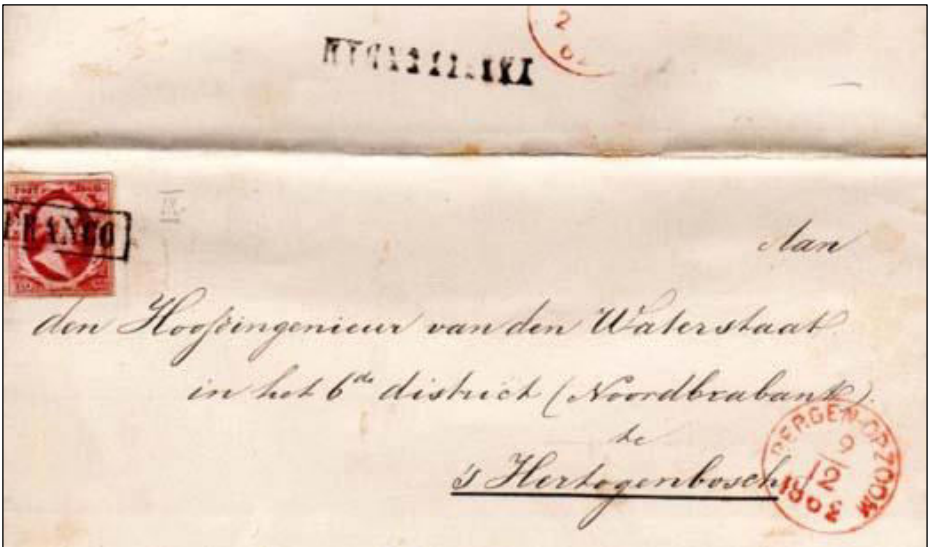 2
FRANCO
Aan
den Hoofdingenieur van den Waterstaat
in het 6de district (Noordbrabant).
te
's Hertogenbosch
BERGEN-OPZOOM
9
12
1862